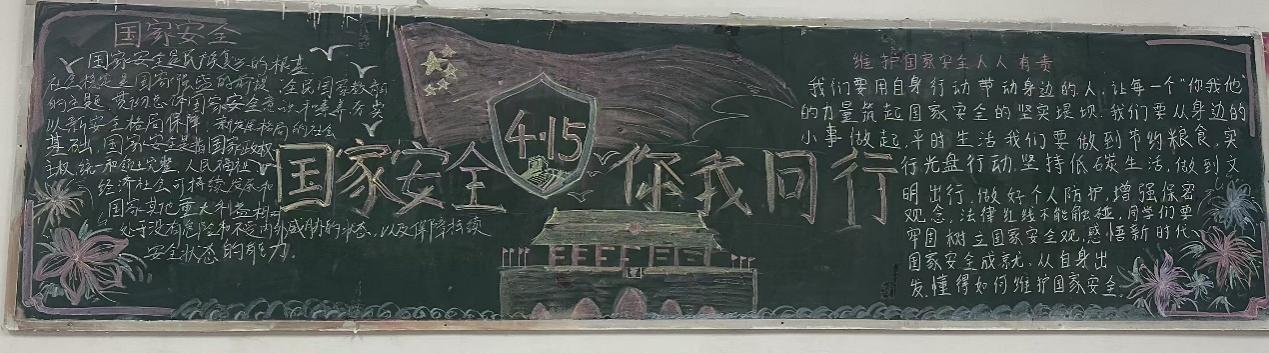 国家安全
国家安全是民族复兴的根基
社会稳定是国家强盛的前提
以新安全格局保障
基础，国家安全是指国家政权
主权、统一和领土完整、人民福祉、
经济社会可持续发展和
国家其他重大利益相对
处于没有危险和不受内外威胁的状态，以及保障持续
安全状态的能力。
4·15
国家安全 你我同行
维护国家安全人人有责
我们要用自身行动带动身边的人，让每一个“你我他”
的力量筑起国家安全的坚实堤坝。我们要从身边的
小事做起，平时生活我们要做到节约粮食，实
行光盘行动，坚持低碳生活，做到文
明出行，做好个人防护，增强保密
观念，法律红线不能触碰，同学们要
牢固树立国家安全观，感悟新时代
国家安全成就，从自身出
发，懂得如何维护国家安全。